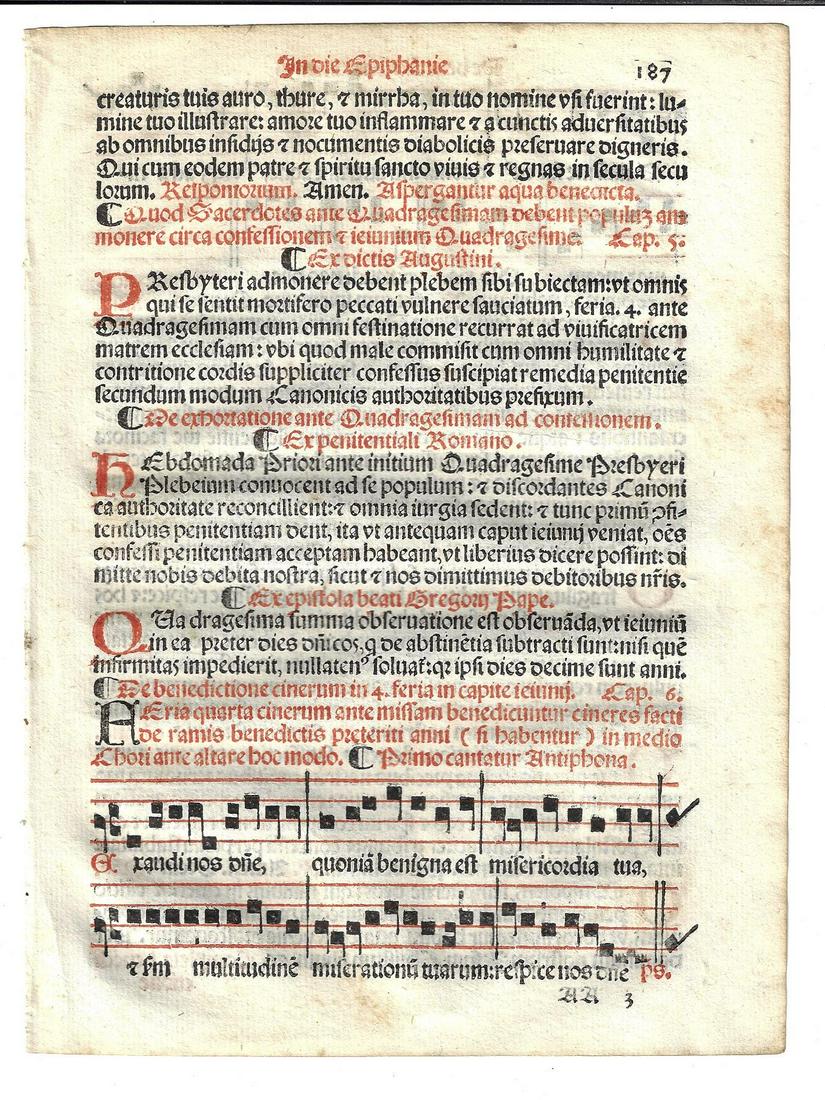 In die Epiphanie 187
creaturis tuis auro, thure, ⁊ mirrha, in tuo nomine vsi fuerint: lu-
mine tuo illustrare: amore tuo inflammare ⁊ a cunctis aduersitatibus
ab omnibus insidijs ⁊ nocumentis diabolicis preseruare digneris.
Qui cum eodem patre ⁊ spiritu sancto viuis ⁊ regnas in secula secu
lorum. Responsorium. Amen. Aspergantur aqua benedicta.
¶ Quod Sacerdotes ante Quadragesimam debent populuꝫ am
monere circa confessionem ⁊ ieiunium Quadragesime. Cap. 5.
¶ Ex dictis Augustini.
PResbyteri admonere debent plebem sibi subiectam: vt omnis
qui se sentit mortifero peccati vulnere sauciatum, feria. 4. ante
Quadragesimam cum omni festinatione recurrat ad viuificatricem
matrem ecclesiam: vbi quod male commisit cum omni humilitate ⁊
contritione cordis suppliciter confessus suscipiat remedia penitentie
secundum modum Canonicis authoritatibus prefixum.
¶ De exhortatione ante Quadragesimam ad confessionem.
¶ Ex penitentiali Romano.
HEbdomada Priori ante initium Quadragesime Presbyeri
Plebeium conuocent ad se populum: ⁊ discordantes Canoni
ca authoritate reconcillient: ⁊ omnia iurgia sedent: ⁊ tunc primū ꝯfi-
tentibus penitentiam dent, ita vt antequam caput ieiunij veniat, oēs
confessi penitentiam acceptam habeant, vt liberius dicere possint: di
mitte nobis debita nostra, sicut ⁊ nos dimittimus debitoribus nr̄is.
¶ Ex epistola beati Gregorij Pape.
QUa dragesima summa obseruatione est obseruāda, vt ieiuniū
in ea preter dies dn̄icos, q̨ de abstinētia subtracti sunt: nisi quē
infirmitas impedierit, nullatenꝰ soluat᷑: qꝛ ipsi dies decime sunt anni.
¶ De benedictione cinerum in 4. feria in capite ieiunij. Cap. 6.
FEria quarta cinerum ante missam benedicuntur cineres facti
de ramis benedictis preteriti anni ( si habentur ) in medio
Chori ante altare hoc modo. ¶ Primo cantatur Antiphona.
Exaudi nos dn̄e, quoniā benigna est misericordia tua,
⁊ sm multitudinē miserationū tuarum: respice nos dn̄e ps.
AA 3